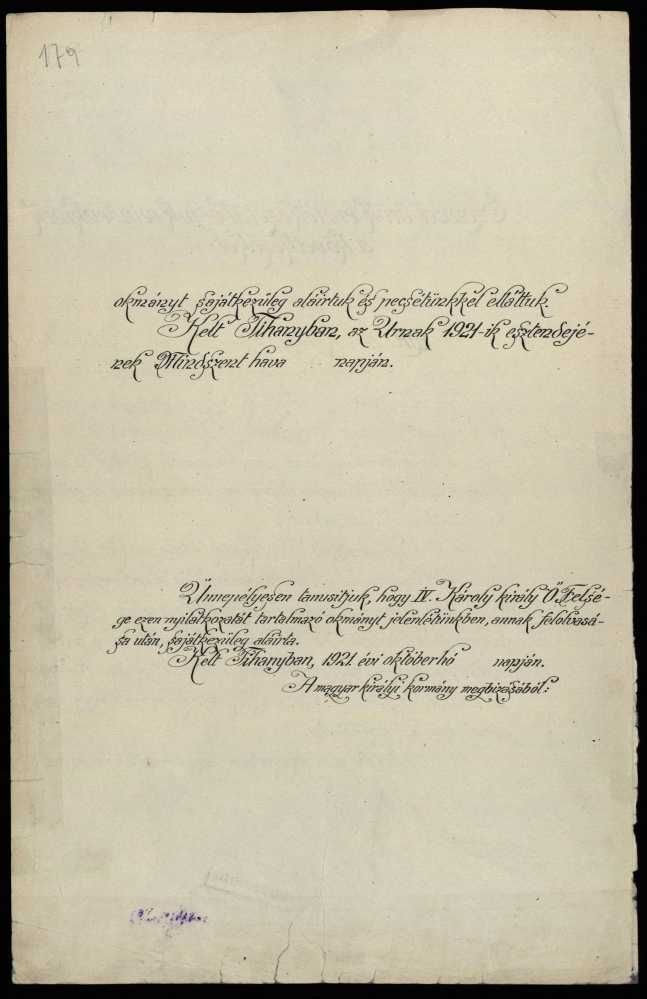 179
okmányt sajátkezüleg aláirtuk és pecsétünkkel elláttuk.
Kelt Tihanyban, az Urnak 1921-ik esztendejé-
nek Mindszent hava napján.
Ünnepélyesen tanusitjuk, hogy IV. Károly király Ő Felsé-
ge ezen nyilatkozatát tartalmazó okmányt jelenlétünkben, annak felolvasá-
sa után, sajátkezüleg aláirta.
Kelt Tihanyban, 1921. évi októberhó napján.
A magyar királyi kormány megbizásából: